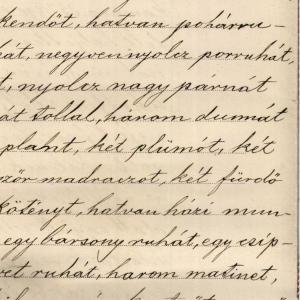 kendőt, hatvan pohárru-
hát, negyvennyolcz porruhát,
t, nyolcz nagy párnát
át tollal, három dunnát
plant, két plümót, két
ször madraczot, két fürdő
kötényt, hatvan házi mun-
egy bársony ruhát, egy csip-
vet ruhát, három matinet,